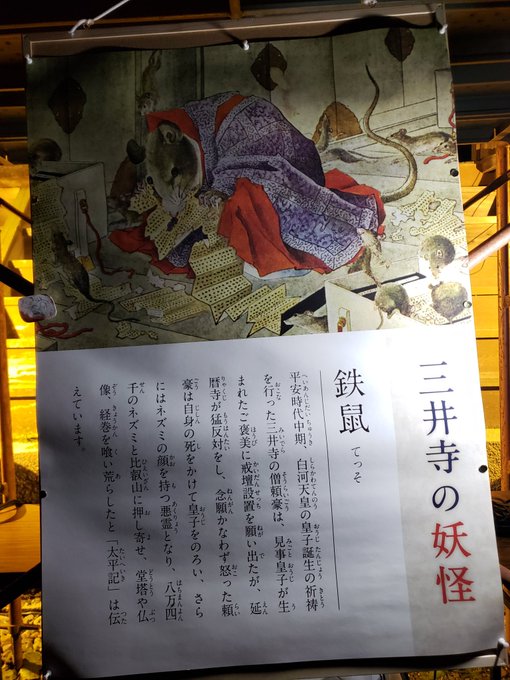 三井寺の妖怪
鉄鼠 てっそ
平安時代中期、白河天皇の皇子誕生の祈祷
を行った三井寺の僧頼豪は、見事皇子が生
まれたご褒美に戒壇設置を願い出たが、延
暦寺が猛反対をし、念願かなわず怒った頼
豪は自身の死をかけて皇子をのろい、さら
にはネズミの顔を持つ悪霊となり、八万四
千のネズミと比叡山に押し寄せ、堂塔や仏
像、経巻を喰い荒らしたと「太平記」は伝
えています。